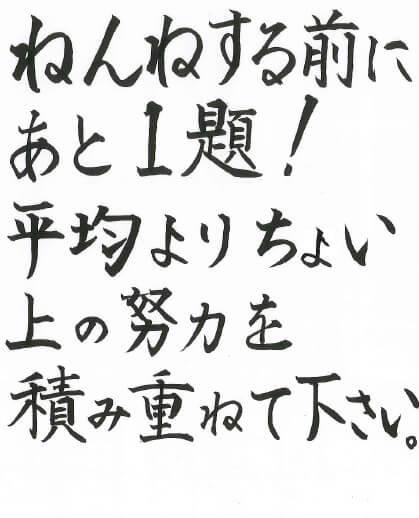 ねんねする前に
あと1題！
平均よりちょい
上の努力を
積み重ねて下さい。